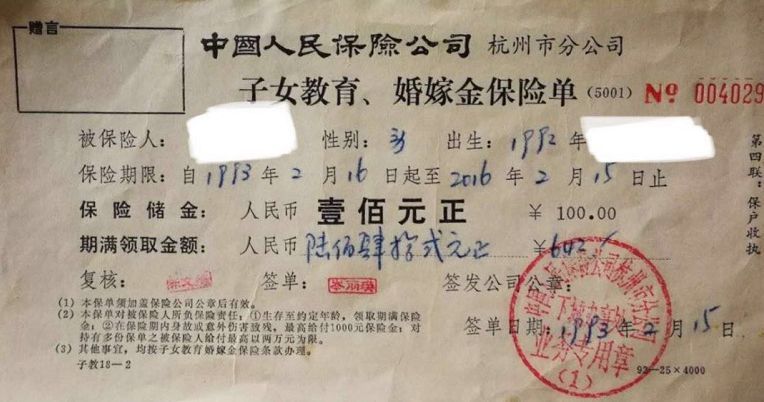 赠言
中國人民保險公司 杭州市分公司
子女教育、婚嫁金保险单 (5001) № 004029
被保险人： 性别： 出生：1992年
保险期限：自1993年2月16日起至2016年2月15日止
保险储金：人民币 壹佰元正 ￥100.00
期满领取金额：人民币 陆佰肆拾弍元正 ￥642
复核： 签单： 签发公司公章：
(1) 本保单须加盖保险公司公章后有效。
(2) 本保单对被保险人所负保险责任：①生存至约定年龄，领取期满保险
金；②在保险期内身故或意外伤害致残，最高给付1000元保险金；对
持有多份保单之被保险人给付最高以两万元为限。
(3) 其他事宜，均按子女教育婚嫁金保险条款办理。
签单日期：1993年2月15日
子教18—2
92—25×4000
第四联：保户收执
业务专用章
(1)